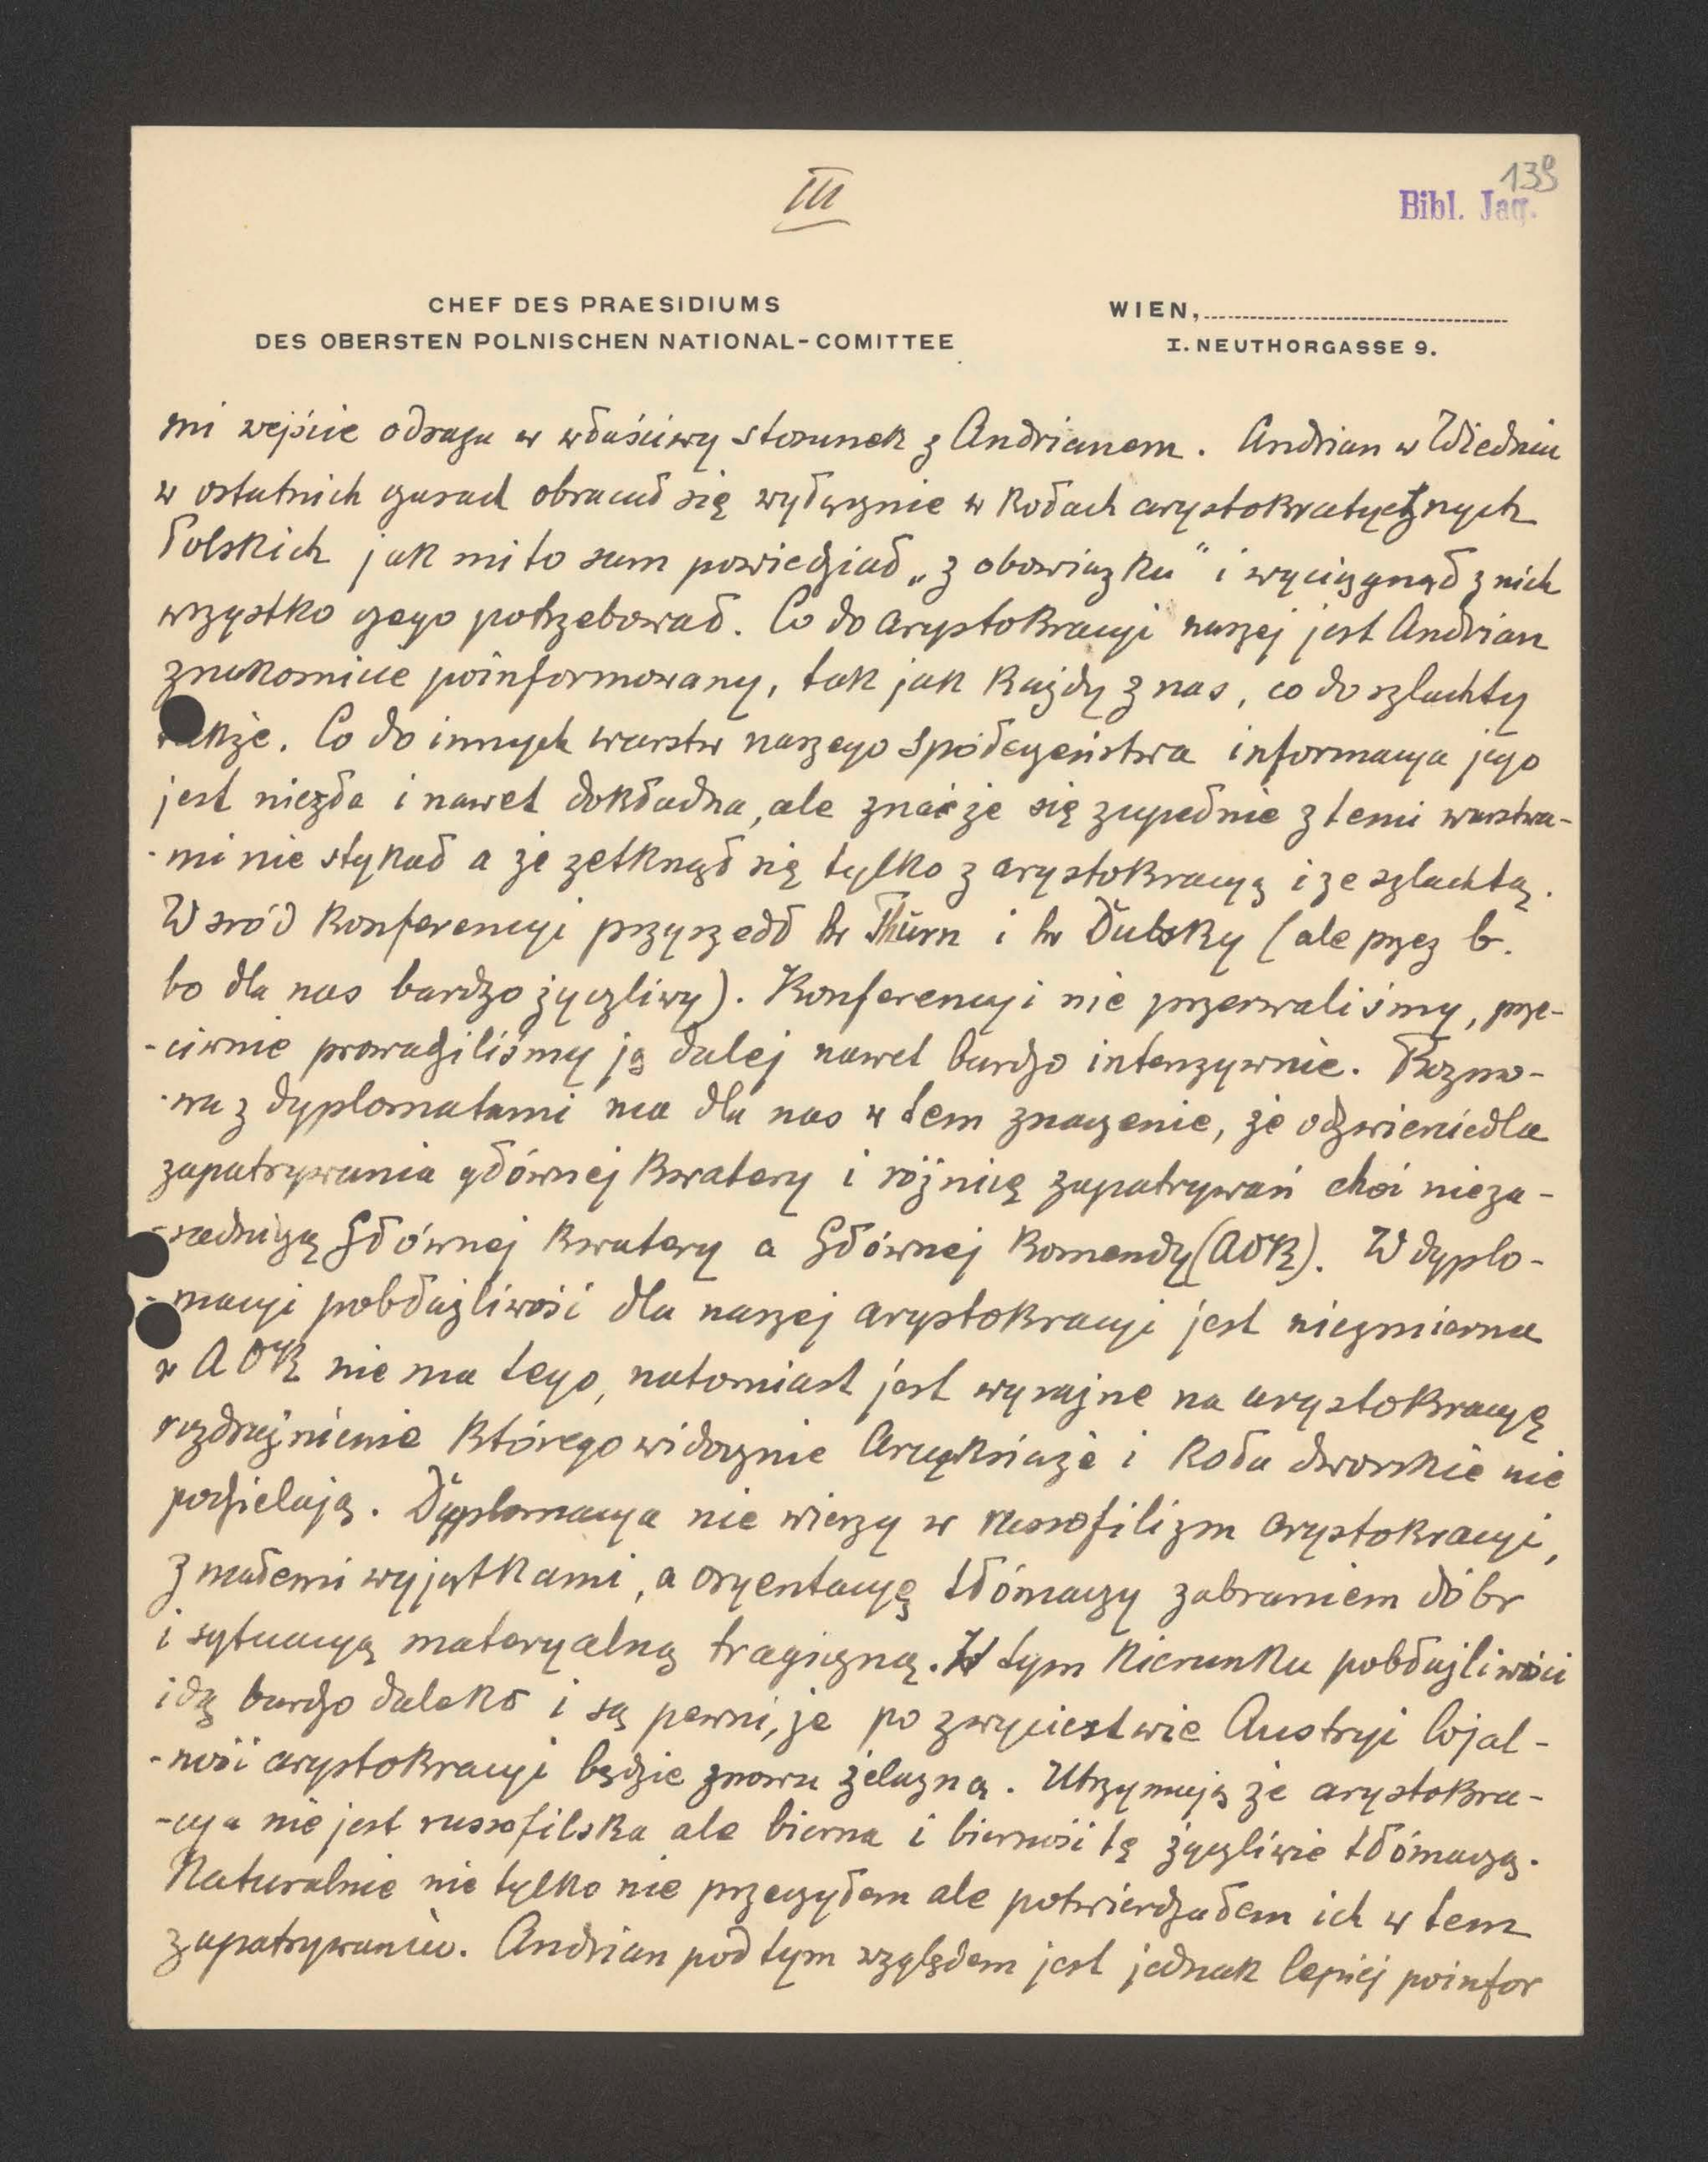 III
139
Bibl. Jag.
CHEF DES PRAESIDIUMS
DES OBERSTEN POLNISCHEN NATIONAL-COMITTEE
WIEN,
I. NEUTHORGASSE 9.
mi wejście odrazu w właściwy stosunek z Andrianem. Andrian w Wiedniu
w ostatnich czasach obracał się wyłącznie w kołach arystokratycznych
Polskich jak mi to sam powiedział „z obowiązku" i wyciągnął z nich
wszystko czego potrzebował. Co do arystokracyi naszej jest Andrian
znakomicie poinformowany, tak jak każdy z nas, co do szlachty
także. Co do innych warstw naszego społeczeństwa informacya jego
jest niezła i nawet dokładna, ale znać że się zupełnie z temi warstwa-
-mi nie stykał a że zetknął się tylko z arystokracyą i ze szlachtą.
Wśród konferencyi przyszedł hr Thurn i hr Dubsky (ale przez b.
bo dla nas bardzo życzliwy). Konferencyi nie przerwaliśmy, prze-
-ciwnie prowadziliśmy ją dalej nawet bardzo intenzywnie. Rozmo-
-wa z dyplomatami ma dla nas w tem znaczenie, że odzwierciedla
zapatrywania głównej Kwatery i różnicę zapatrywań choć nieza-
-sadniczą Głównej Kwatery a Głównej Komendy (AOK). W dyplo-
-macyi pobłażliwość dla naszej arystokracyi jest niezmierna
w AOK nie ma tego, natomiast jest wyraźne na arystokracyę
rozdrażnienie którego widocznie Arcyksiąże i koła dworskie nie
podzielają. Dyplomacya nie wierzy w russofilizm arystokracyi,
z małemi wyjątkami, a oryentacyę tłómaczy zabraniem dóbr
i sytuacyą materyalną tragiczną. W tym kierunku pobłażliwości
idą bardzo daleko i są pewni, że po zwycięstwie Austryi lojal-
-ność arystokracyi będzie znowu żelazną. Utrzymują że arystokra-
-cya nie jest russofilska ale bierna i bierność tę życzliwie tłómaczą.
Naturalnie nie tylko nie przeczyłem ale potwierdzałem ich w tem
zapatrywaniu. Andrian pod tym względem jest jednak lepiej poinfor